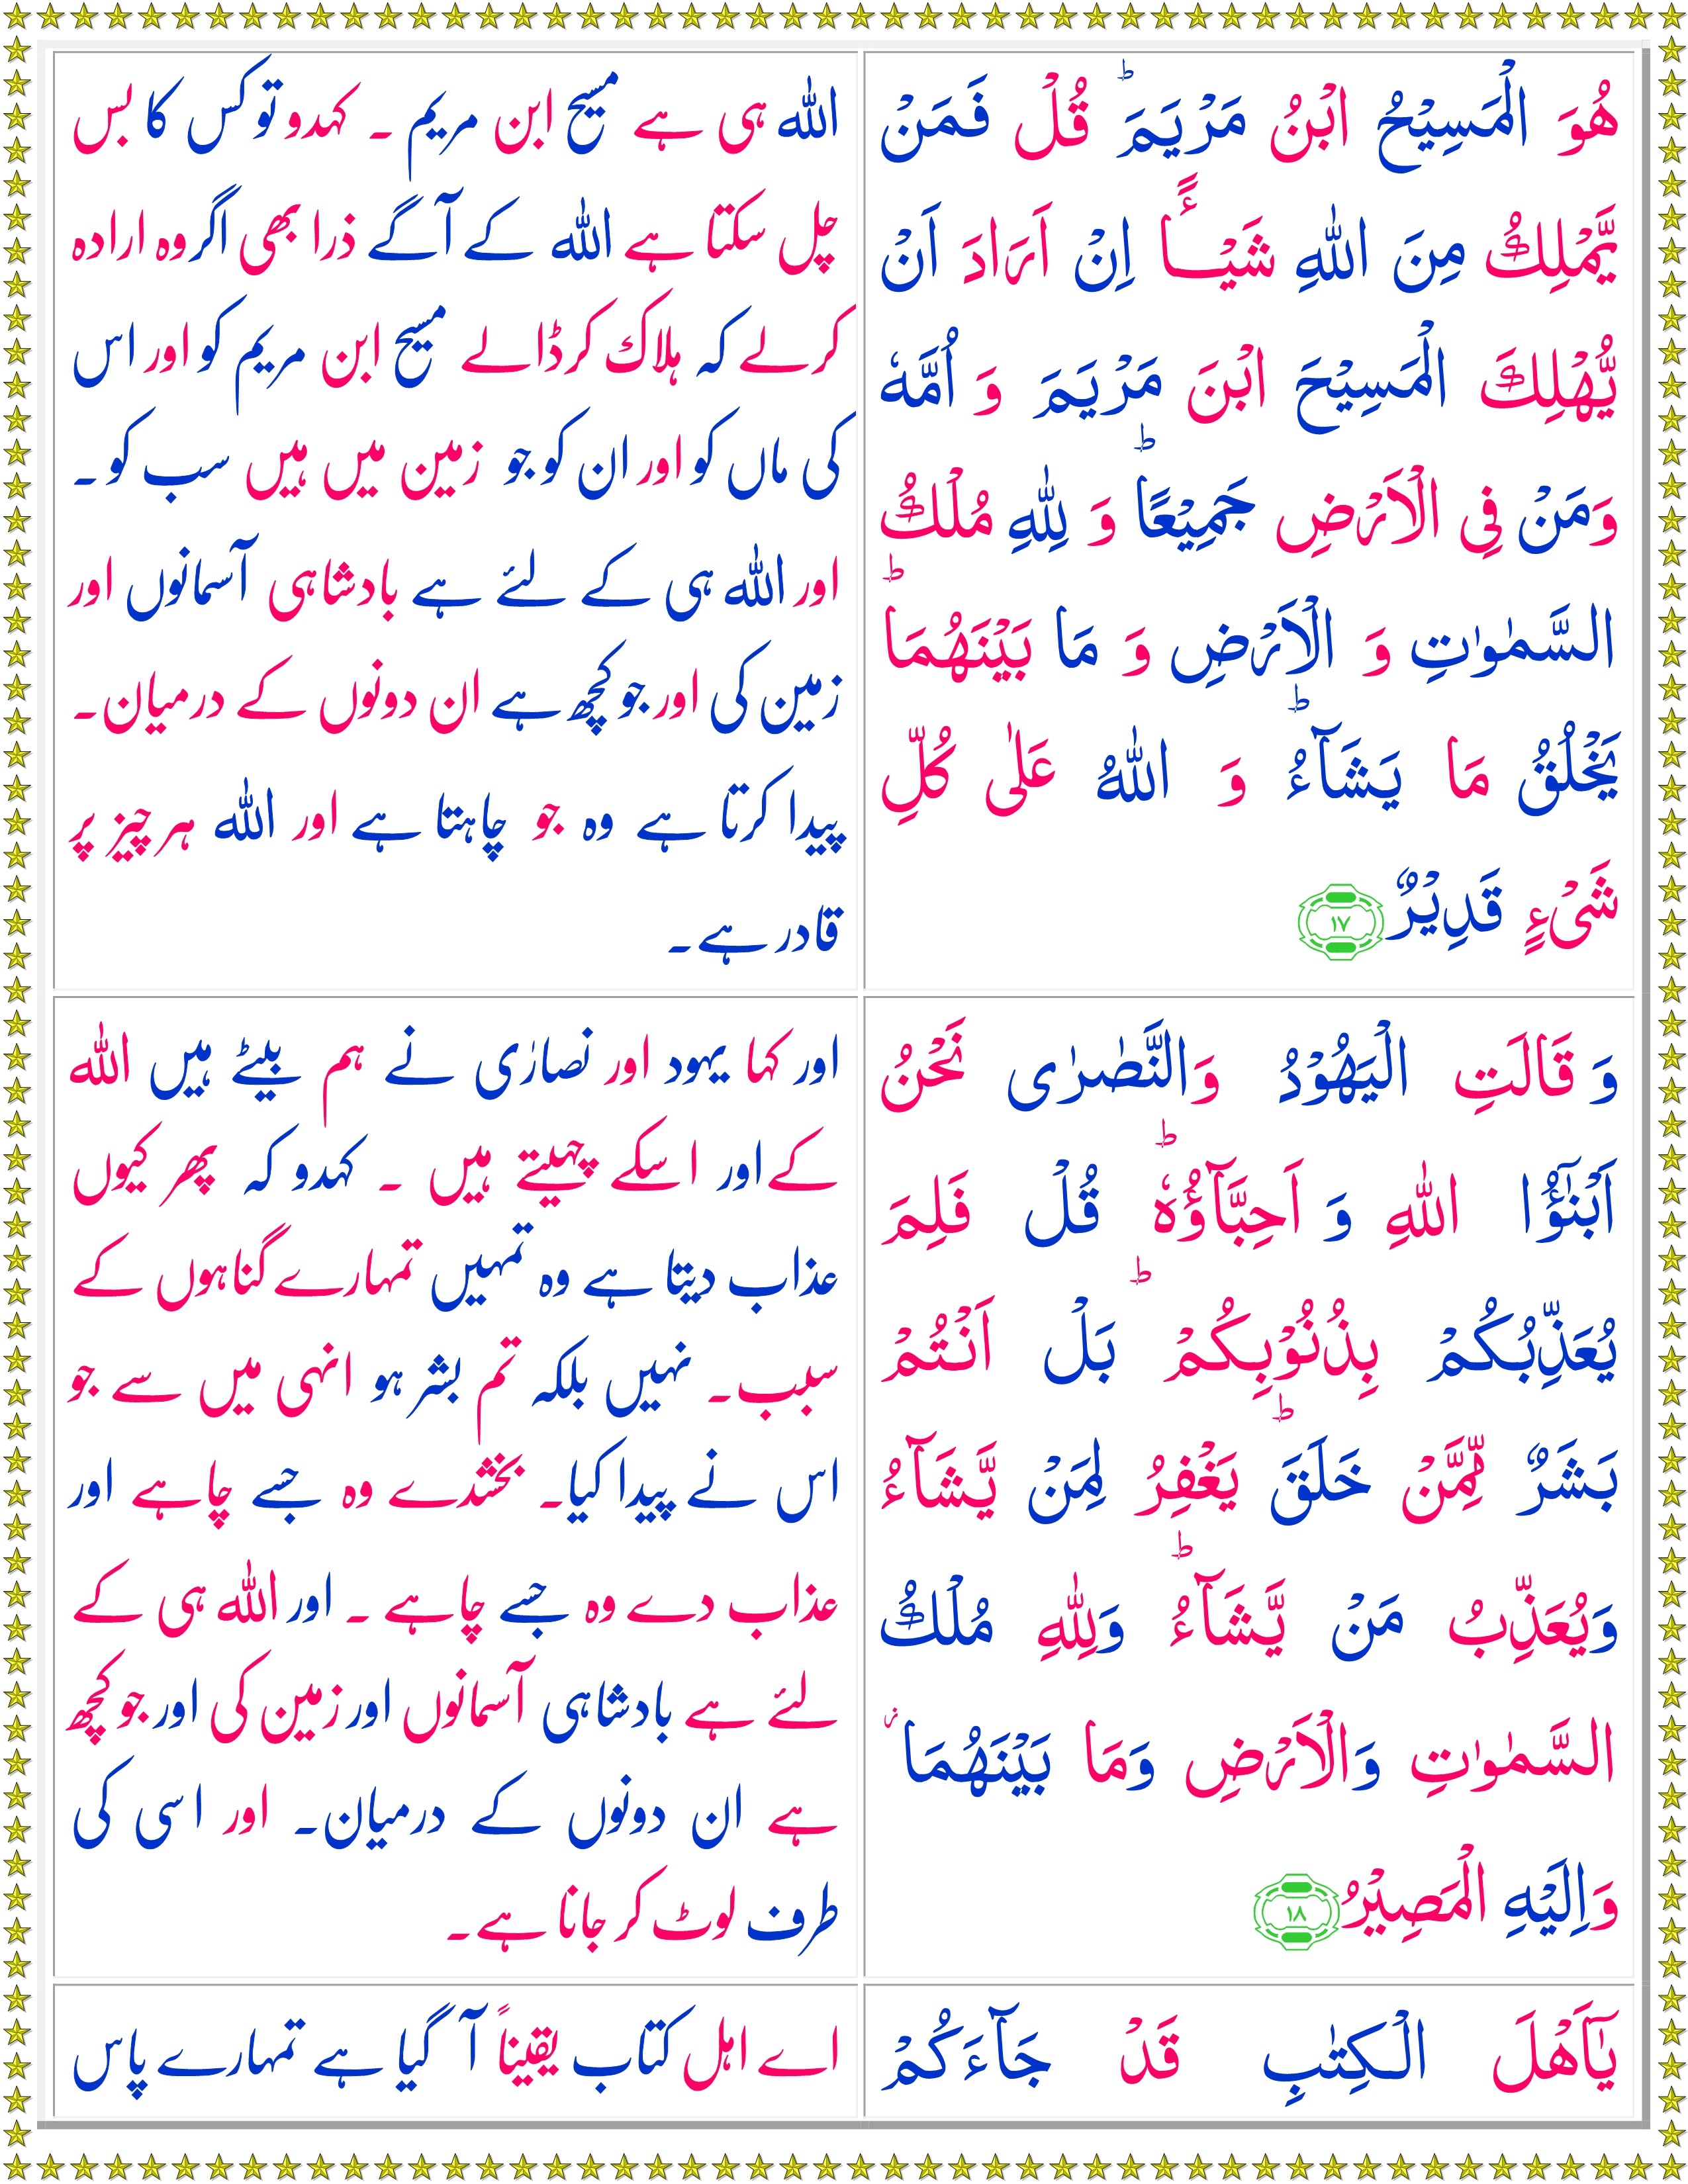 هُوَ الْمَسِيْحُ ابْنُ مَرْيَمَ ؕ قُلْ فَمَنْ
يَّمْلِكُ مِنَ اللّٰهِ شَيْـًٔا اِنْ اَرَادَ اَنْ
يُّهْلِكَ الْمَسِيْحَ ابْنَ مَرْيَمَ وَ اُمَّهٗ
وَمَنْ فِى الْاَرْضِ جَمِيْعًا ؕ وَ لِلّٰهِ مُلْكُ
السَّمٰوٰتِ وَ الْاَرْضِ وَ مَا بَيْنَهُمَا ؕ
يَخْلُقُ مَا يَشَآءُ ؕ وَ اللّٰهُ عَلٰى كُلِّ
شَىْءٍ قَدِيْرٌ ١٧
اللہ ہی ہے مسیح ابن مریم ۔ کہدو تو کس کا بس
چل سکتا ہے اللہ کے آگے ذرا بھی اگر وہ ارادہ
کرلے کہ ہلاک کرڈالے مسیح ابن مریم کو اور اس
کی ماں کو اور ان کو جو زمین میں ہیں سب کو۔
اور اللہ ہی کے لئے ہے بادشاہی آسمانوں اور
زمین کی اور جو کچھ ہے ان دونوں کے درمیان۔
پیدا کرتا ہے وہ جو چاہتا ہے اور اللہ ہر چیز پر
قادر ہے۔
وَ قَالَتِ الْيَهُوْدُ وَالنَّصٰرٰى نَحْنُ
اَبْنٰٓؤُا اللّٰهِ وَ اَحِبَّآؤُهٗ ؕ قُلْ فَلِمَ
يُعَذِّبُكُمْ بِذُنُوْبِكُمْ ؕ بَلْ اَنْتُمْ
بَشَرٌ مِّمَّنْ خَلَقَ ؕ يَغْفِرُ لِمَنْ يَّشَآءُ
وَيُعَذِّبُ مَنْ يَّشَآءُ ؕ وَلِلّٰهِ مُلْكُ
السَّمٰوٰتِ وَالْاَرْضِ وَمَا بَيْنَهُمَا ۫
وَاِلَيْهِ الْمَصِيْرُ ١٨
اور کہا یہود اور نصارٰی نے ہم بیٹے ہیں اللہ
کے اور اسکے چہیتے ہیں ۔ کہدو کہ پھر کیوں
عذاب دیتا ہے وہ تمہیں تمہارے گناہوں کے
سبب۔ نہیں بلکہ تم بشر ہو انہی میں سے جو
اس نے پیدا کیا۔ بخشدے وہ جسے چاہے اور
عذاب دے وہ جسے چاہے ۔ اور اللہ ہی کے
لئے ہے بادشاہی آسمانوں اور زمین کی اور جو کچھ
ہے ان دونوں کے درمیان۔ اور اسی کی
طرف لوٹ کر جانا ہے۔
يٰٓاَهْلَ الْكِتٰبِ قَدْ جَآءَكُمْ
اے اہل کتاب یقیناً آ گیا ہے تمہارے پاس